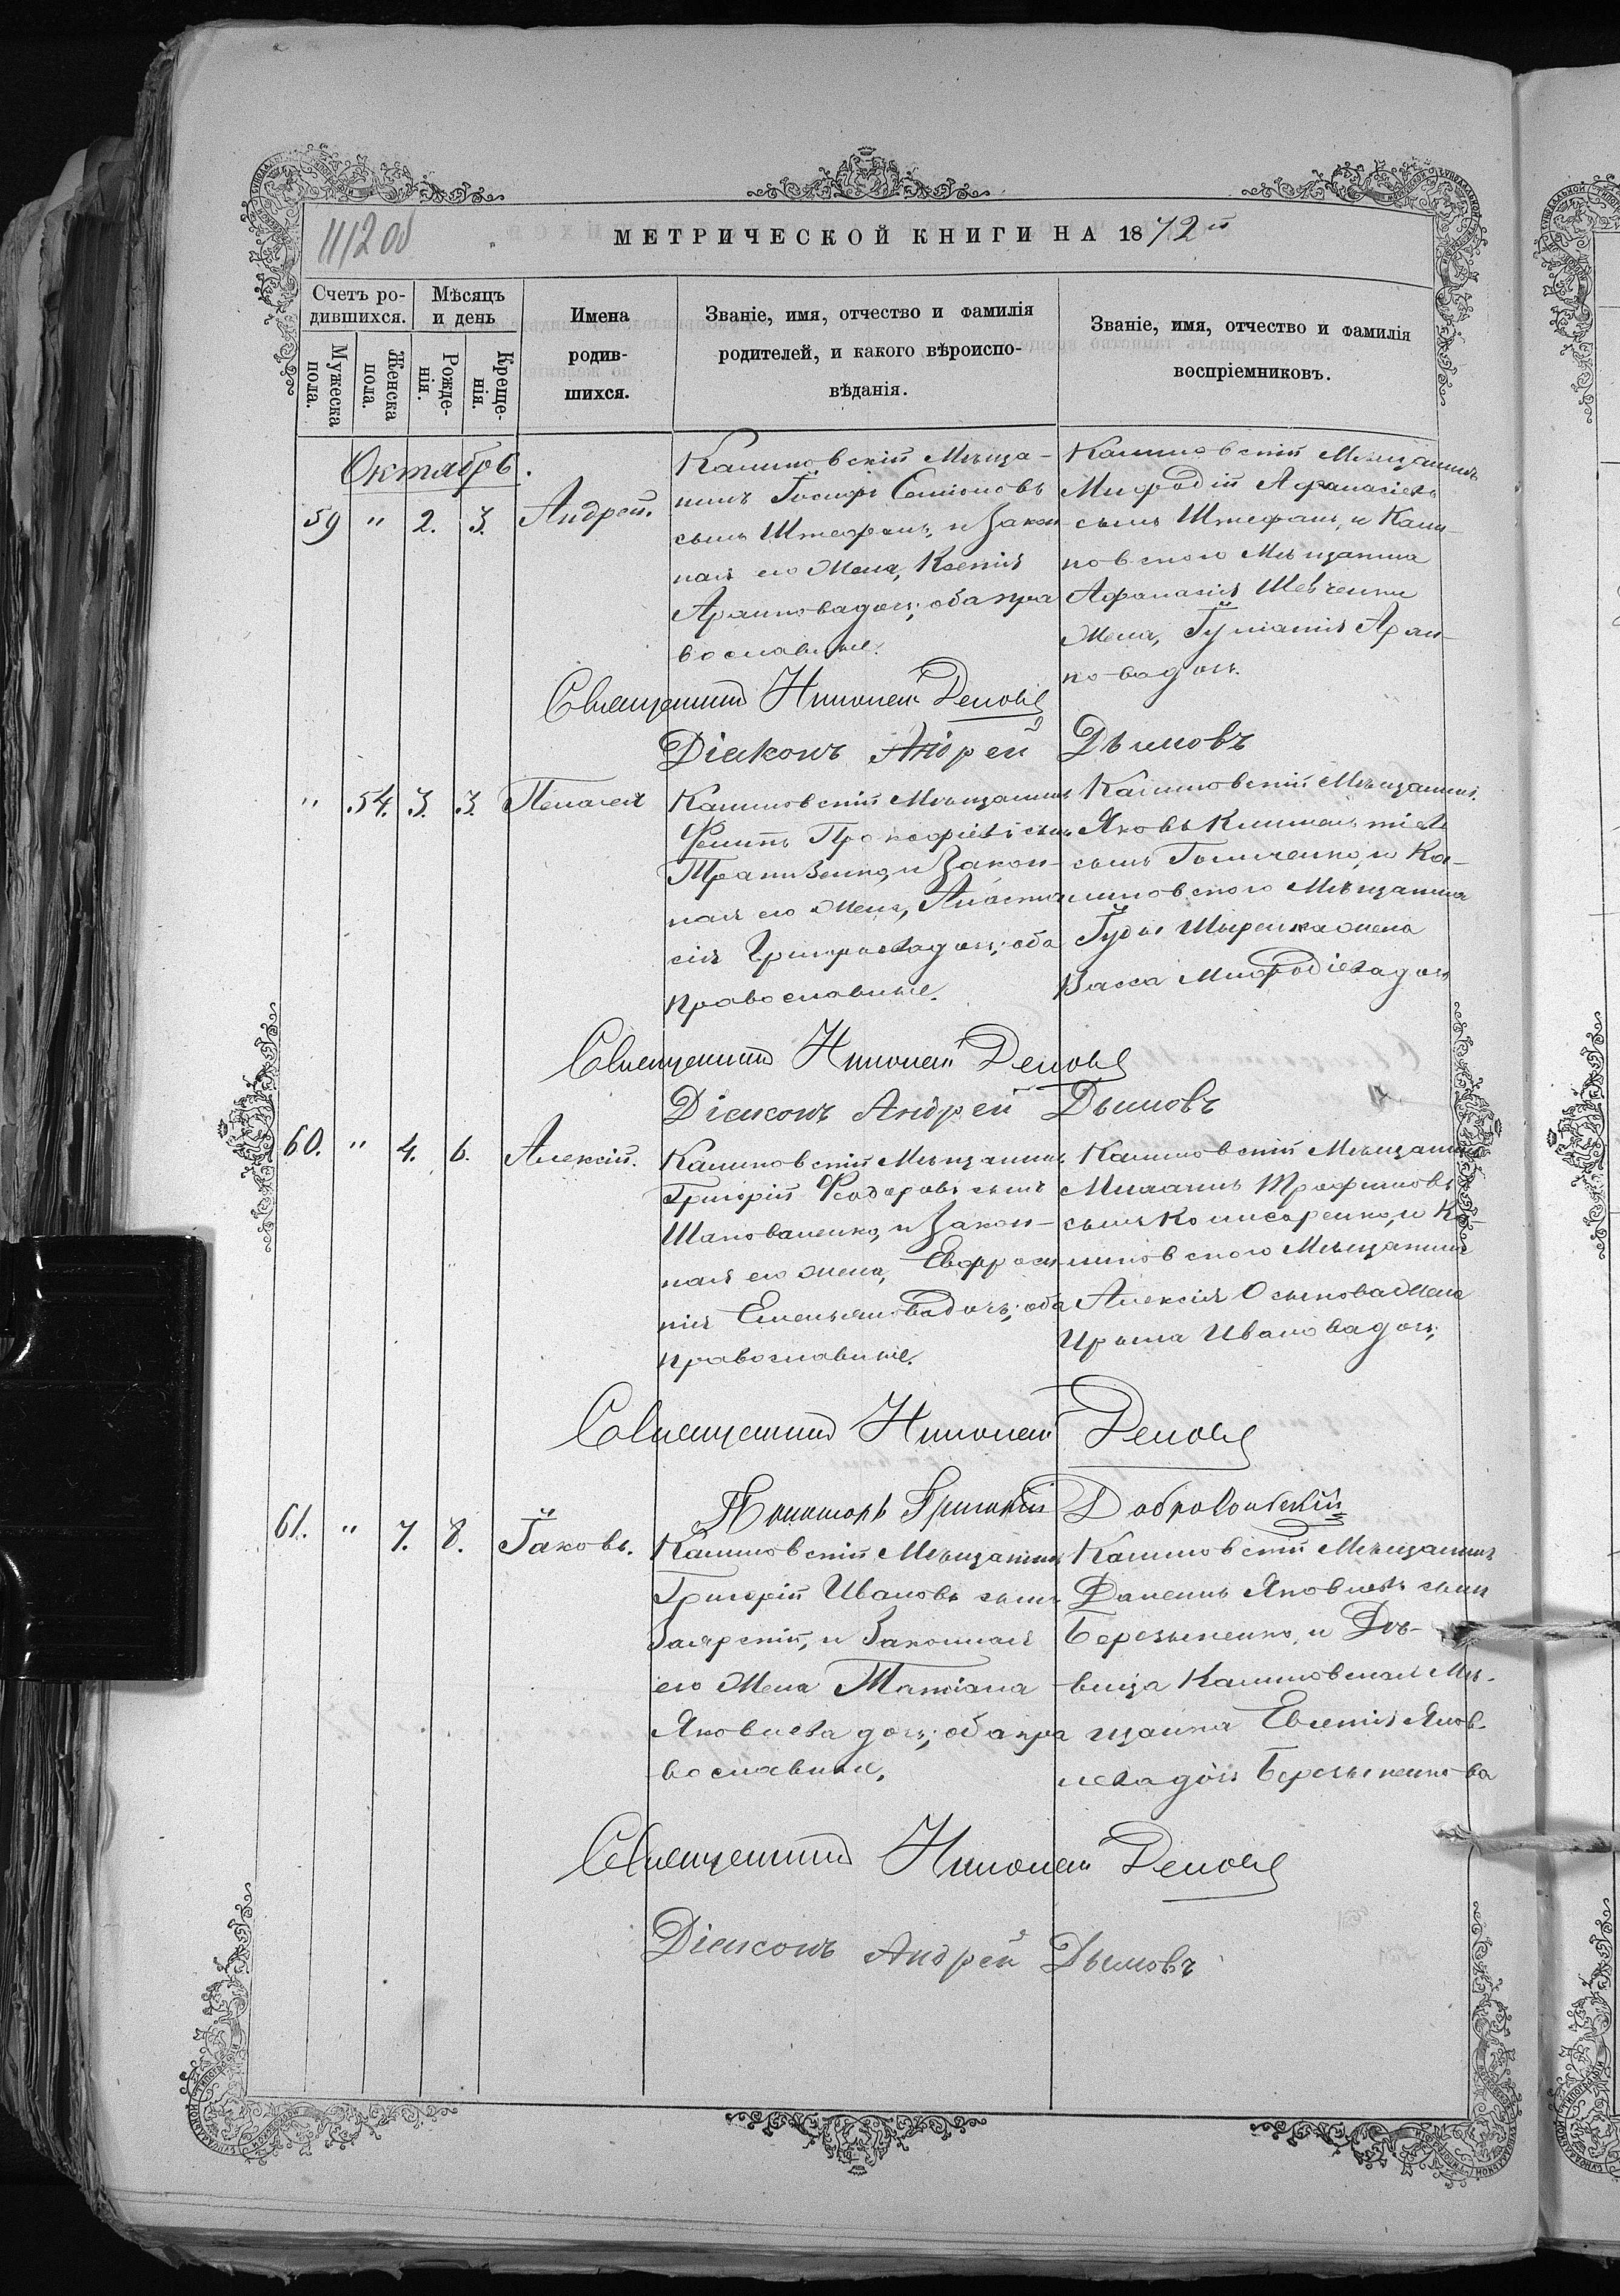 11120б
МЕТРИЧЕСКОЙ КНИГИ НА 1872й
Счетъ ро-
дившихся.
Мѣсяцъ
и день
Мужеска
пола.
Женска
пола.
Рожде-
нія.
Креще-
нія.
Имена
родив-
шихся.
Званіе, имя, отчество и фамилія
родителей, и какого вѣроиспо-
вѣданія.
Званіе, имя, отчество и фамилія
воспріемниковъ.
Октябрь.
59 " 2. 3. Андрей.
Калиновскій Мѣща-
нинъ Іосифъ Семіоновъ
сынъ Штефанъ, и Закон
ная его Жена, Ксенія
дочь; оба пра
вославные.
Калиновскій Мѣщанинъ
Мифодій Афанасіевъ
сынъ Штефанъ, и Кали-
новскаго Мѣщанина
Афанасія Шевченки
Жена, Іуліанія
дочь.
Священникъ Николай
Діаконъ Андрей Дымовъ
" 54. 3. 3. Пелагея
Калиновскій Мѣщанинъ
Филипъ Прокофіевъ сынъ
и Закон-
ная его Жена, Анаста
сія Григорьева дочь; оба
православные.
Калиновскій Мѣщанинъ.
Яковъ Климентіевъ
сынъ и Ка-
линовскаго Мѣщанина
Іуды жена
Васса Мифодіева дочь
Священникъ Николай
Діаконъ Андрей Дымовъ
60. " 4. 6. Алексій.
Калиновскій Мѣщанинъ
Григорій Феодоровъ сынъ
Шаповаленко, и Закон-
ная его жена, Евфроси
нія Емельянова дочь; оба
православные.
Калиновскій Мѣщанинъ
Михаилъ Трофимовъ
сынъ Комисаренко, и Ка-
линовскаго Мѣщанина
Алексія Осыпова Жена
Ирина Иванова дочь;
Священникъ Николай
Григорій Добровольскій
61. " 7. 8. Іаковъ.
Калиновскій Мѣщанинъ
Григорій Ивановъ сынъ
Заярскій, и Законная
его Жена Татіана
Яковлева дочь; оба пра
вославные,
Калиновскій Мѣщанинъ
Даніилъ Яковлевъ сынъ
и Дѣ-
вица Калиновская Мѣ-
щанка Евгенія Яков-
лева дочь
Священникъ Николай
Діаконъ Андрей Дымовъ